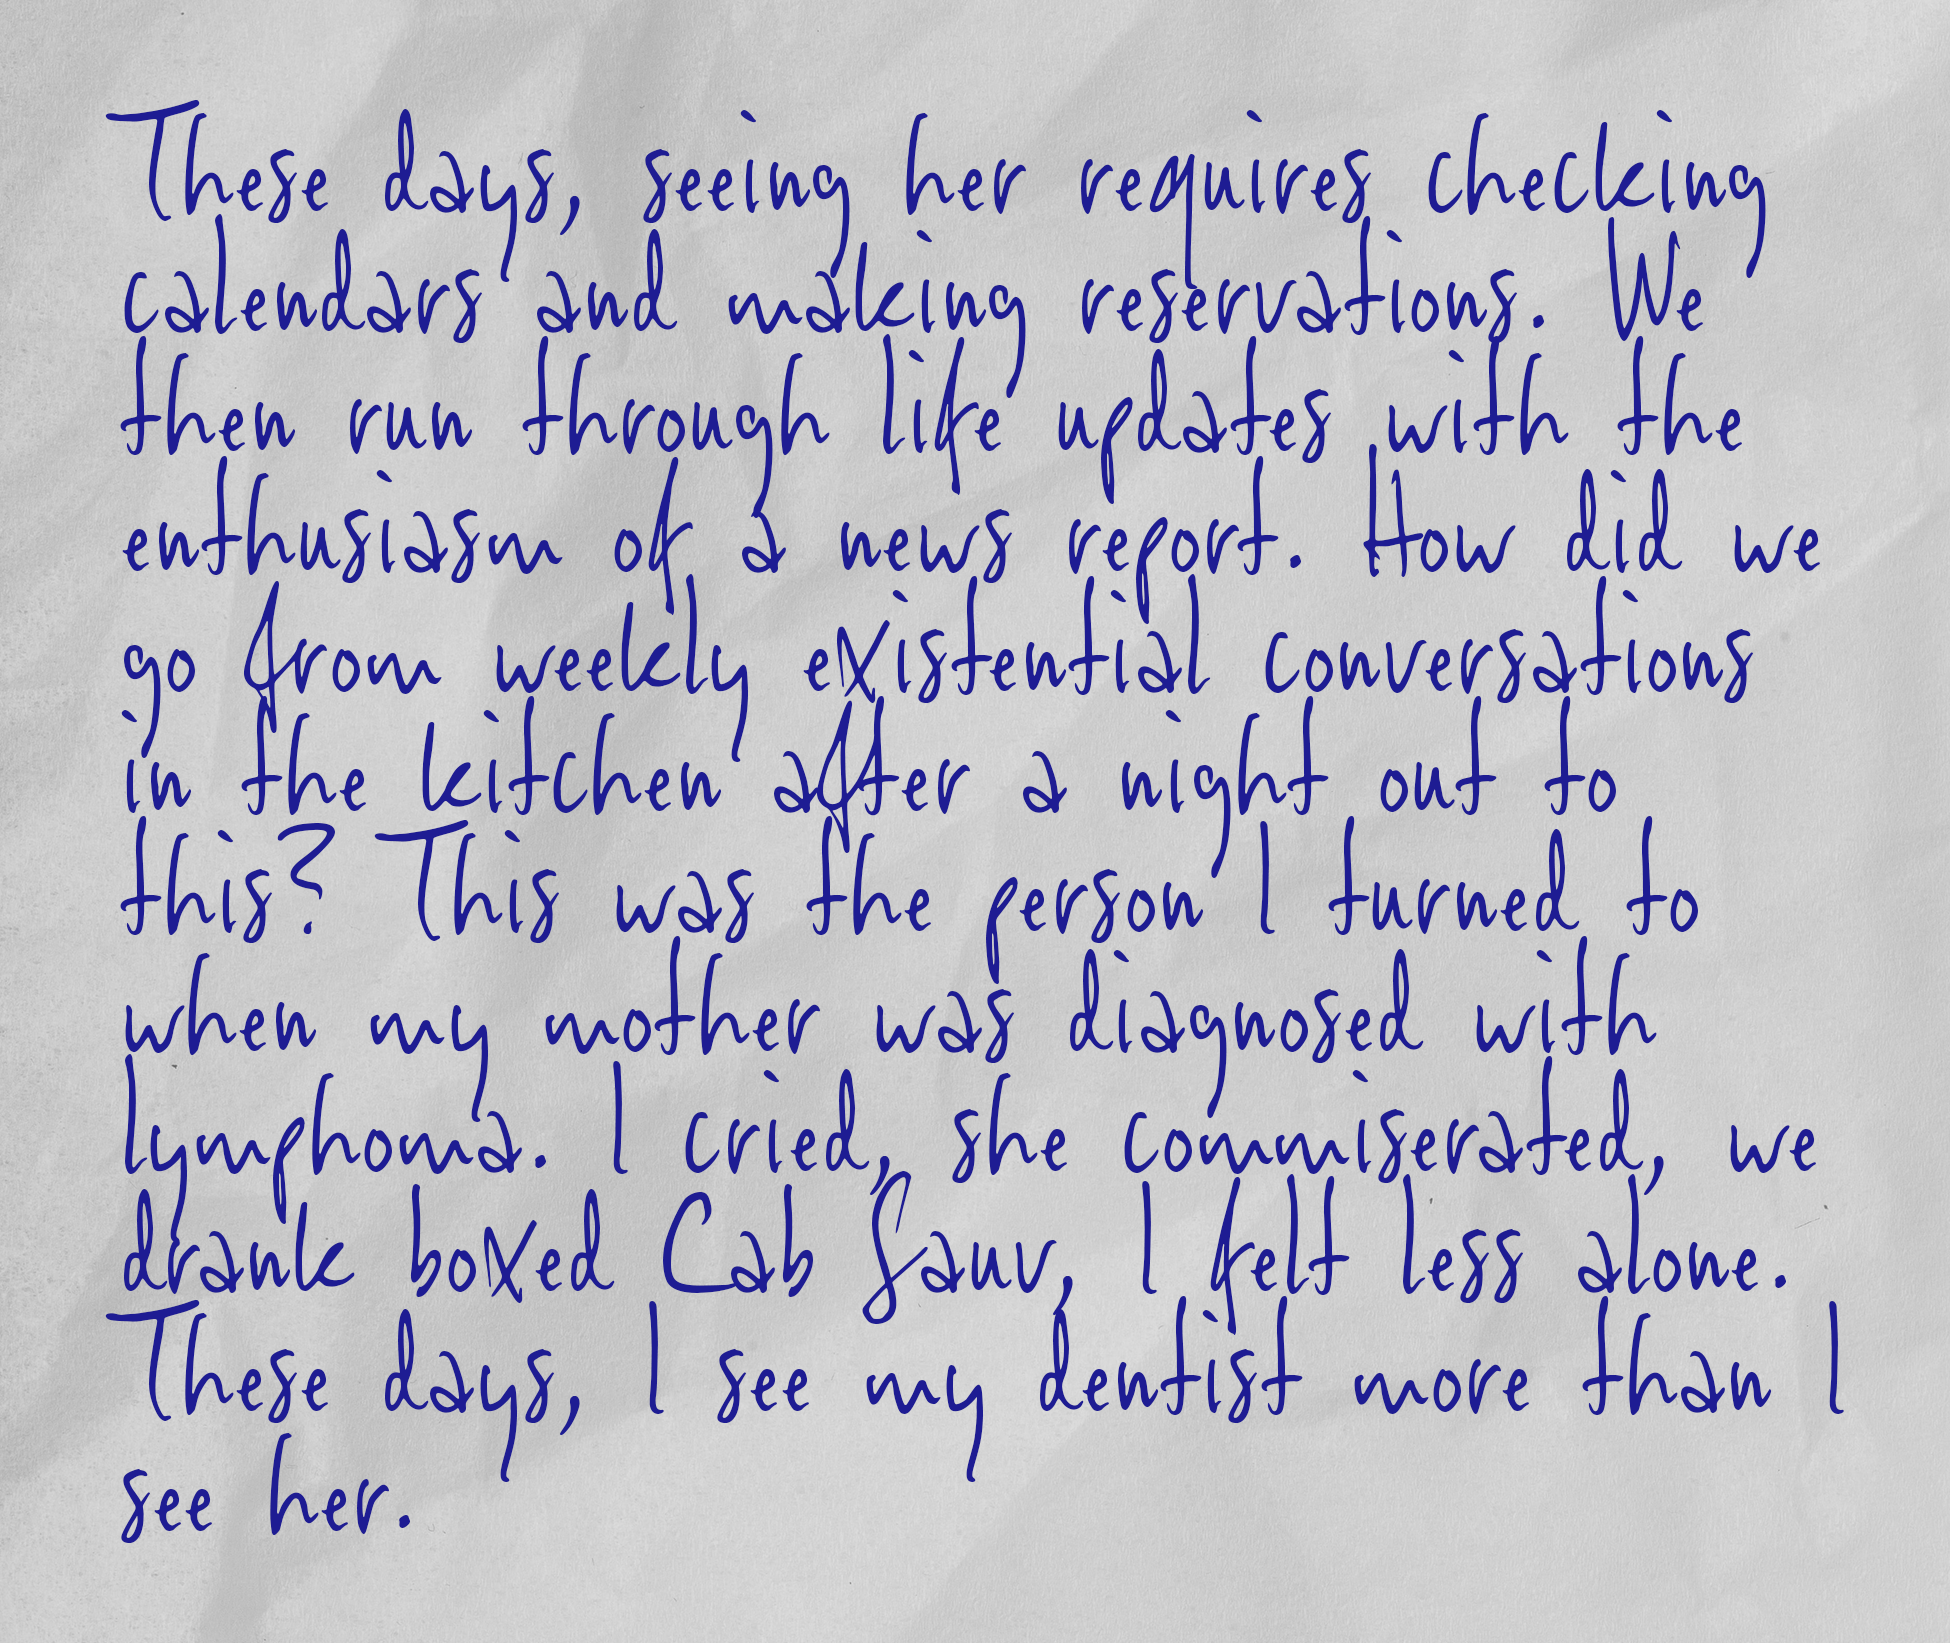 These days, seeing her requires checking
calendars and making reservations. We
then run through life updates with the
enthusiasm of a news report. How did we
go from weekly existential conversations
in the kitchen after a night out to
this? This was the person I turned to
when my mother was diagnosed with
lymphoma. I cried, she commiserated, we
drank boxed Cab Sauv, I felt less alone.
These days, I see my dentist more than I
see her.